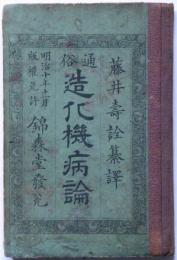 藤井壽詮纂譯
通俗
造化機病論
明治十年十一月
版權免許
錦森堂發兌